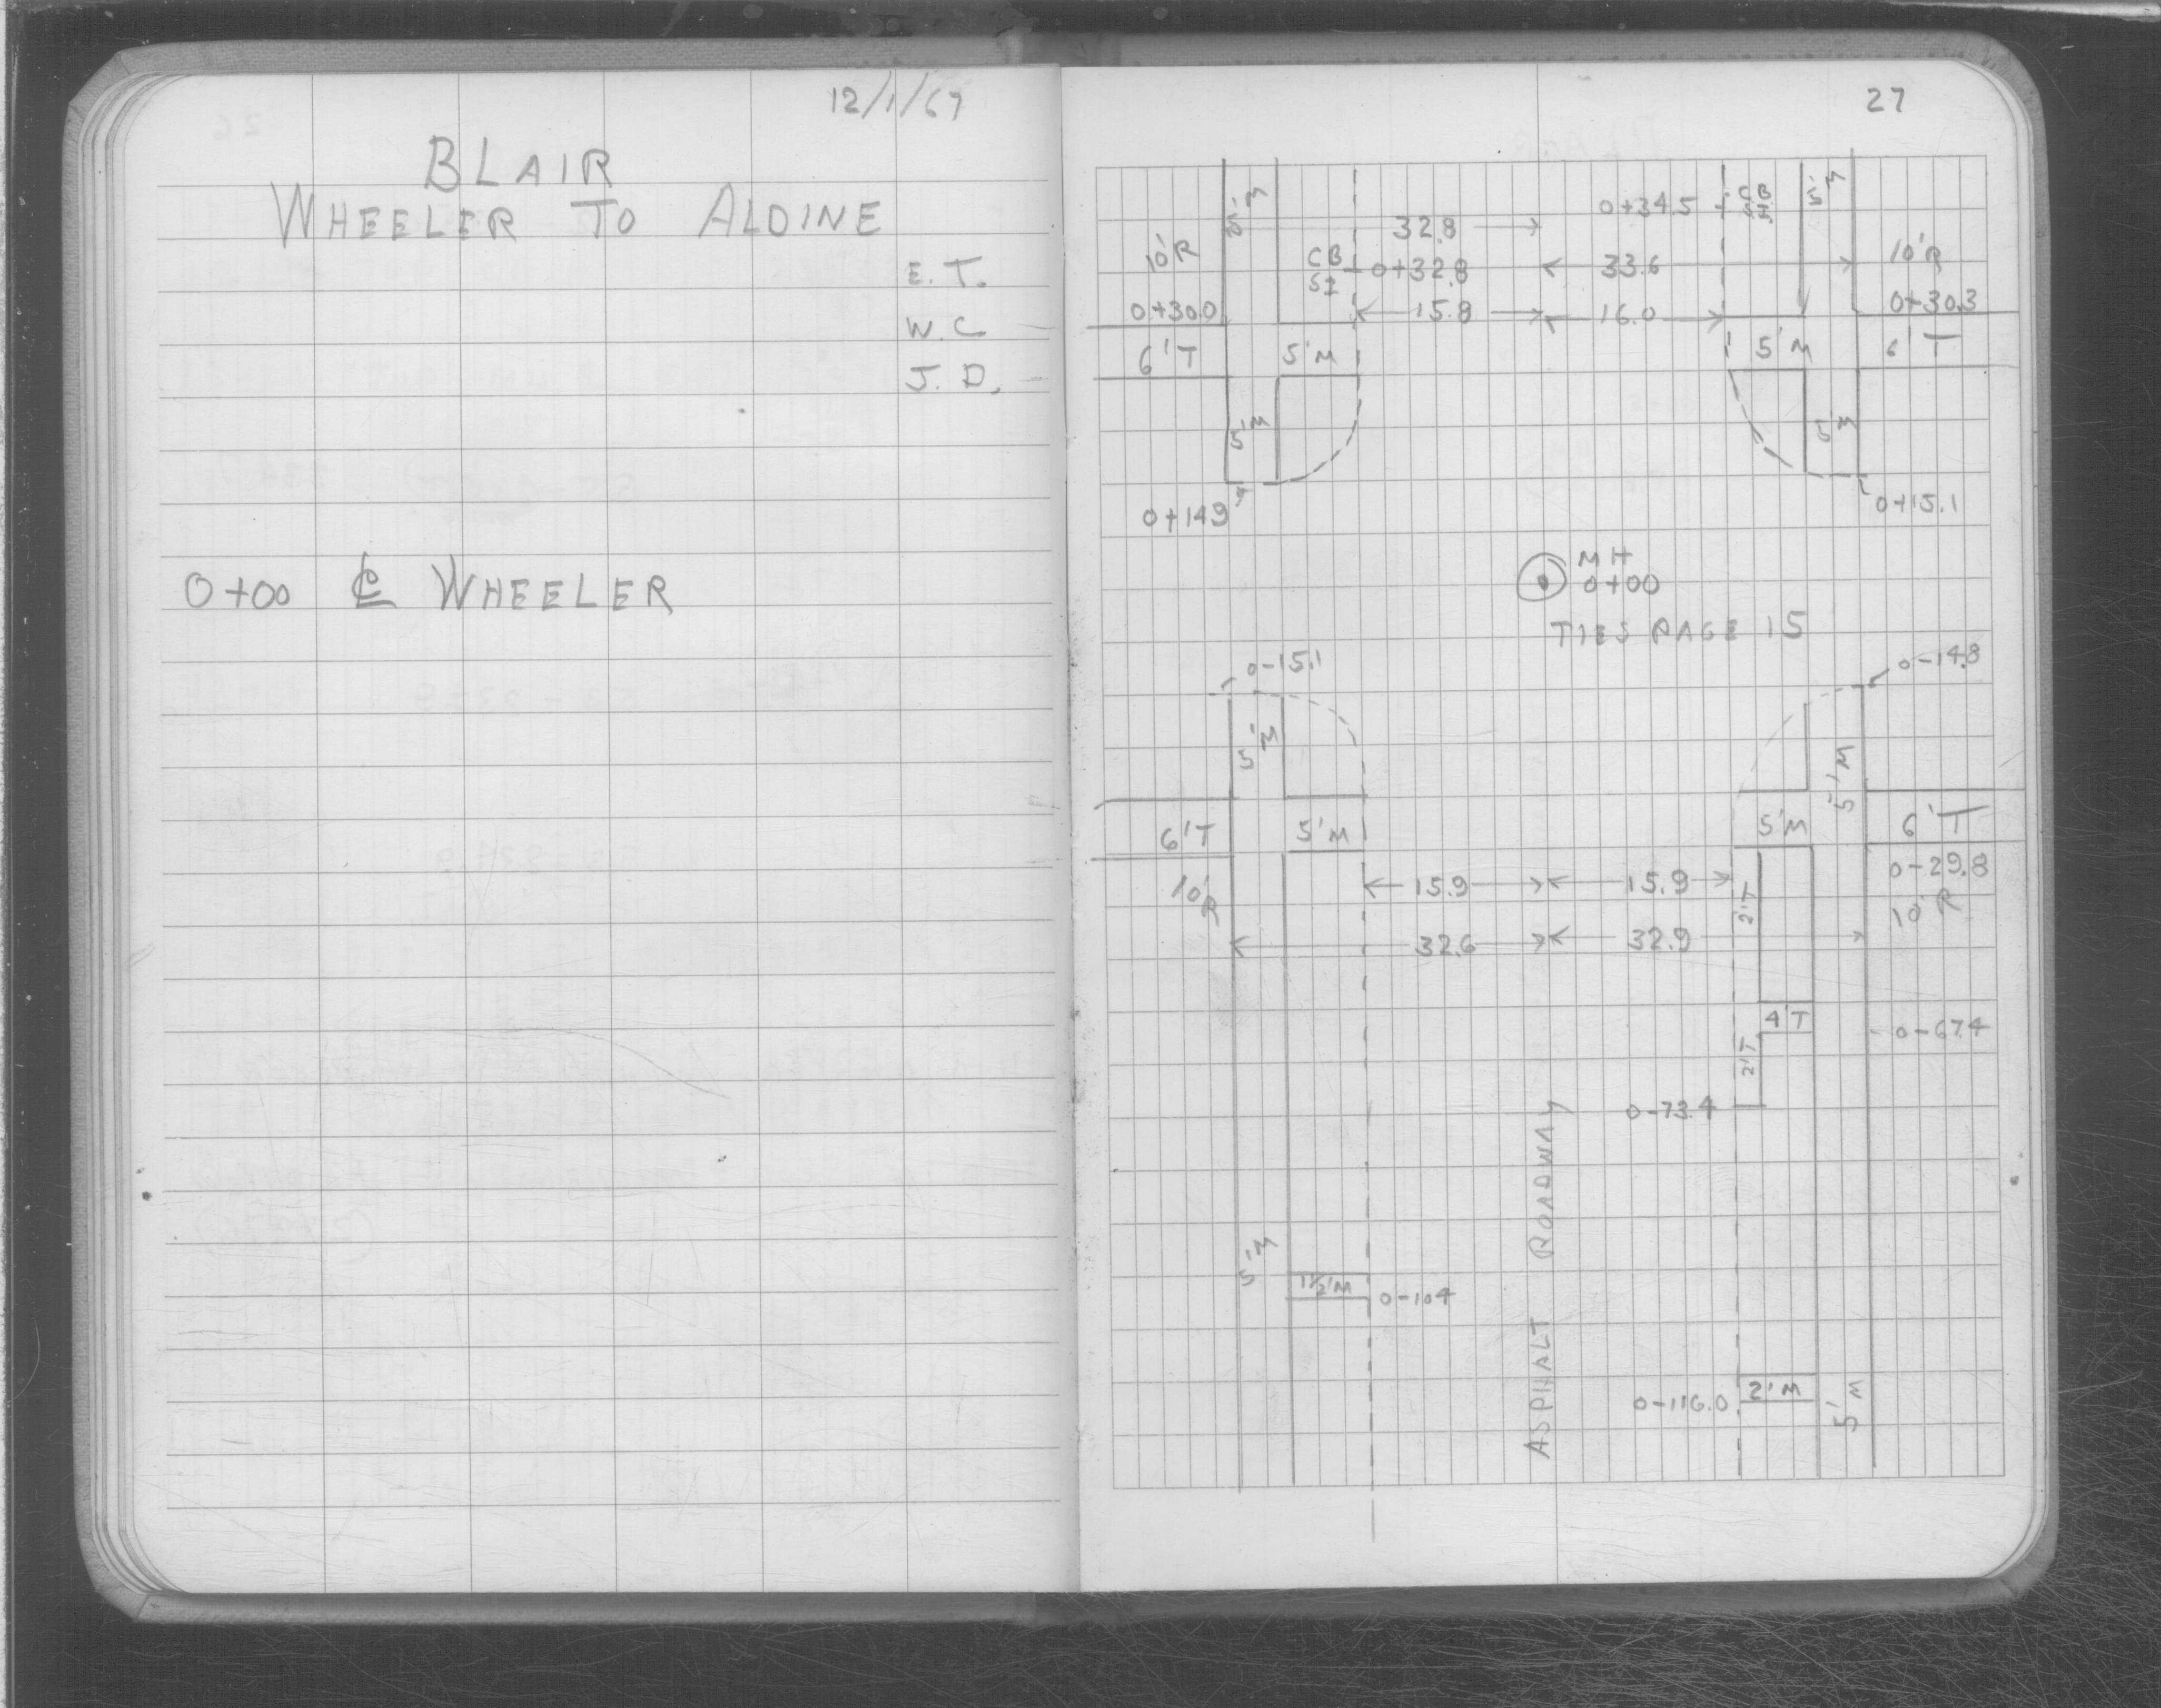 12/1/67
BLAIR
WHEELER TO ALDINE
E. T.
W. C
J. D.
0+00 ℄ WHEELER
27
5'M
0+34.5
CB
5'M
32.8
10'R
CB
SI
0+32.8
33.6
10'R
0+30.0
15.8
16.0
0+30.3
6'T
5'M
5'M
6'T
5'M
5'M
0+14.9
0+15.1
MH
0+00
TIES PAGE 15
0-15.1
0-14.8
5'M
5'M
6'T
5'M
5'M
6'T
15.9
15.9
0-29.8
10'R
2'T
10'R
32.6
32.9
4'T
0-67.4
2'T
0-73.4
ASPHALT ROADWAY
5'M
1½'M
0-104
0-116.0
2'M
5'M